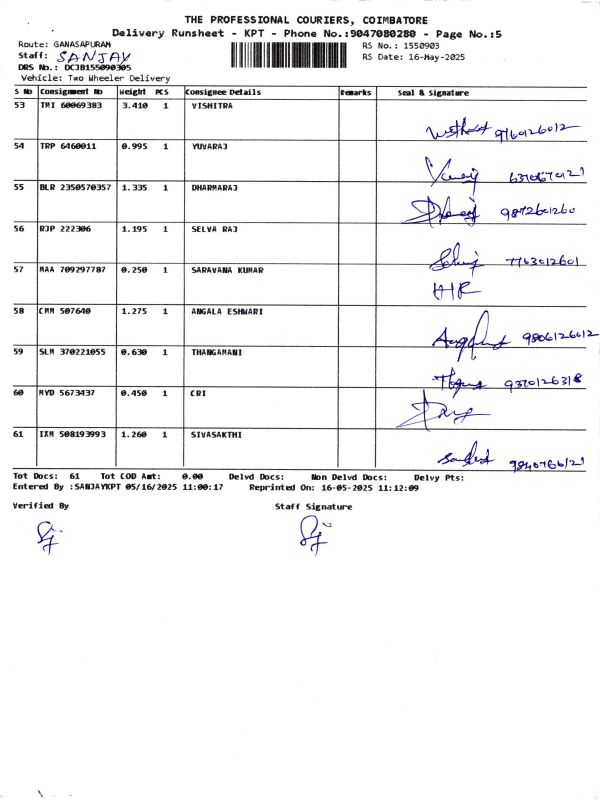 THE PROFESSIONAL COURIERS, COIMBATORE
Delivery Runsheet - KPT - Phone No.:9047080280 - Page No.:5
Route: GANASAPURAM
RS No.: 1550903
Staff: SANJAY
RS Date: 16-May-2025
DRS No.: DCJB155090305
Vehicle: Two Wheeler Delivery
S No Consignment No Weight PCS Consignee Details Remarks Seal & Signature
53 TMI 60069383 3.410 1 VISHITRA
9760126012
54 TRP 6460011 0.995 1 YUVARAJ
55 BLR 2350570357 1.335 1 DHARMARAJ
9872601260
56 RJP 222306 1.195 1 SELVA RAJ
7763012601
57 MAA 709297787 0.250 1 SARAVANA KUMAR
H/R
58 CMM 507640 1.275 1 ANGALA ESHWARI
9806126012
59 SLM 370221055 0.630 1 THANGAMANI
9370126318
60 MYD 5673437 0.450 1 CRI
61 IXM 508193993 1.260 1 SIVASAKTHI
Tot Docs: 61 Tot COD Amt: 0.00 Delvd Docs: Non Delvd Docs: Delvy Pts:
Entered By :SANJAYKPT 05/16/2025 11:00:17 Reprinted On: 16-05-2025 11:12:09
Verified By Staff Signature